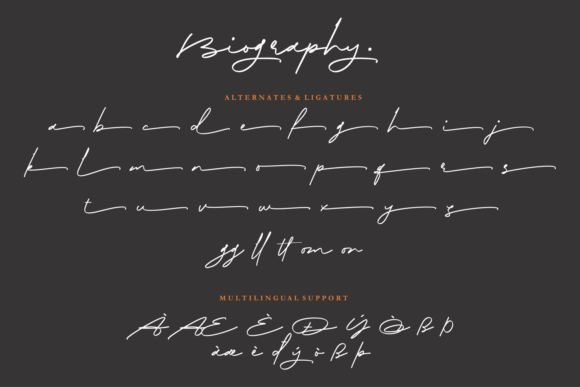 Biography.
ALTERNATES & LIGATURES
a b c d e f g h i j
k l m n o p q r s
t u v w x y s
gg ll tt om on
MULTILINGUAL SUPPORT
À Æ È Ð Ý Ò ß Þ
à æ è d ý ò ß þ